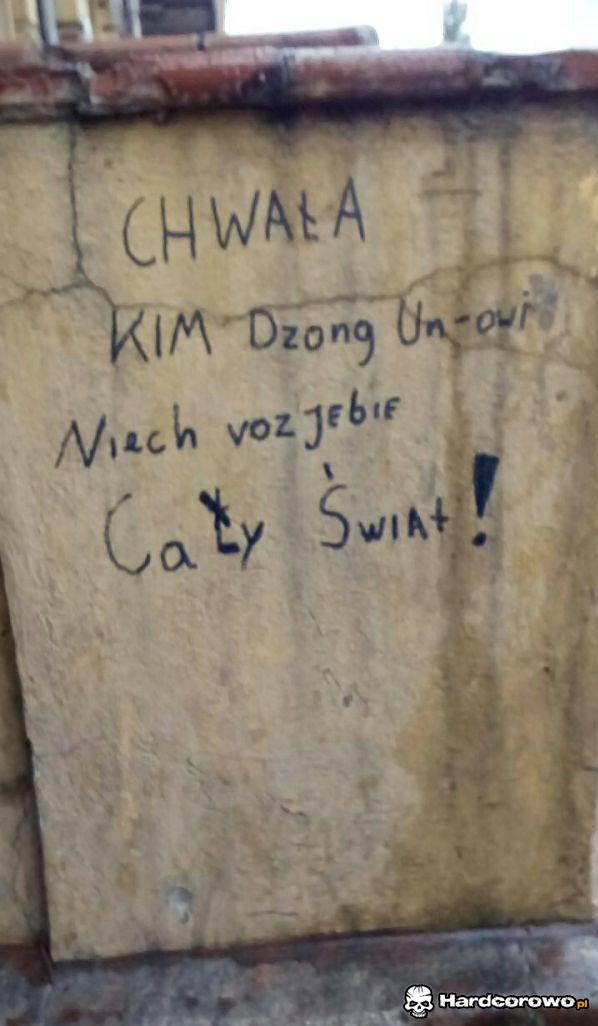 CHWAŁA
KIM Dzong Un-owi
Niech rozJEBIE
CaŁy ŚWIAt!
Hardcorowo.pl